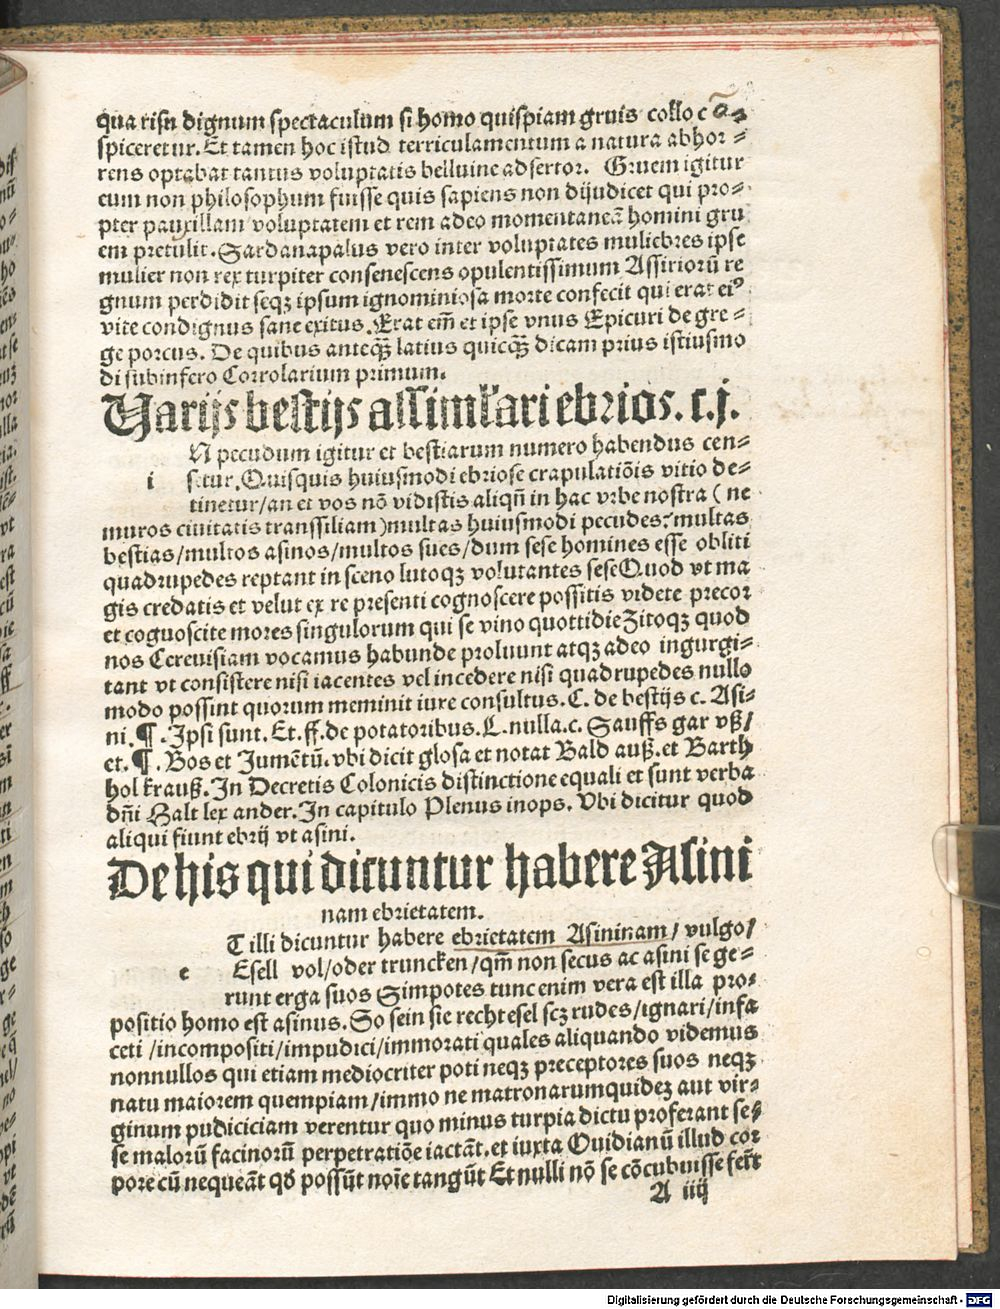 qua risu dignum spectaculum si homo quispiam gruis collo cõ⸗
spiceretur. Et tamen hoc istud terriculamentum a natura abhor⸗
rens optabat tantus voluptatis belluine adsertor. Gruem igitur
eum non philosophum fuisse quis sapiens non dijudicet qui pro⸗
pter pauxillam voluptatem et rem adeo momentaneã homini gru
em pretulit. Sardanapalus vero inter voluptates muliebres ipse
mulier non rex turpiter consenescens opulentissimum Assiriorũ re
gnum perdidit seqꝫ ipsum ignominiosa morte confecit qui erat eiꝰ
vite condignus sane exitus. Erat em̃ et ipse vnus Epicuri de gre⸗
ge porcus. De quibus anteqꝫ̃ latius quicqꝫ̃ dicam prius istiusmo
di subinfero Corrolarium primum.
Varijs bestijs assimilari ebrios. c. j.
N pecudum igitur et bestiarum numero habendus cen⸗
i setur. Quisquis huiusmodi ebriose crapulatiõis vitio de⸗
tinetur/an et vos nõ vidistis aliqñ in hac vrbe nostra (ne
muros ciuitatis transsiliam) multas huiusmodi pecudes? multas
bestias/multos asinos/multos sues/dum sese homines esse obliti
quadrupedes reptant in sceno lutoqꝫ volutantes sese Quod vt ma
gis credatis et velut ex re presenti cognoscere possitis videte precor
et coguoscite mores singulorum qui se vino quottidie Zitoqꝫ quod
nos Cerevisiam vocamus habunde proluunt atqꝫ adeo ingurgi⸗
tant vt consistere nisi iacentes vel incedere nisi quadrupedes nullo
modo possint quorum meminit iure consultus. C. de bestijs c. Asi⸗
ni. ¶. Ipsi sunt. Et. ff. de potatoribus. L. nulla. c. Sauffs gar vß/
et. ¶. Bos et Jumẽtũ. vbi dicit glosa et notat Bald auß. et Barth
hol krauß. In Decretis Colonicis distinctione equali et sunt verba
dñi Halt lex ander. In capitulo Plenus inops. Vbi dicitur quod
aliqui fiunt ebrij vt asini.
De his qui dicuntur habere Asini
nam ebrietatem.
T illi dicuntur habere ebrietatem Asininam/ vulgo/
e Esell vol/oder truncken/qm̃ non secus ac asini se ge⸗
runt erga suos Simpotes tunc enim vera est illa pro⸗
positio homo est asinus. So sein sie recht esel scꝫ rudes/ignari/infa
ceti /incompositi/impudici/immorati quales aliquando videmus
nonnullos qui etiam mediocriter poti neqꝫ preceptores suos neqꝫ
natu maiorem quempiam/immo ne matronarumquideꝫ aut vir⸗
ginum pudiciciam verentur quo minus turpia dictu proferant se⸗
se malorũ facinorũ perpetratiõe iactãt. et iuxta Ouidianũ illud cor
pore cũ nequeãt qď possũt noĩe tangũt Et nulli nõ se cõcubuisse ferũt
A iij
Digitalisierung gefördert durch die Deutsche Forschungsgemeinschaft - DFG